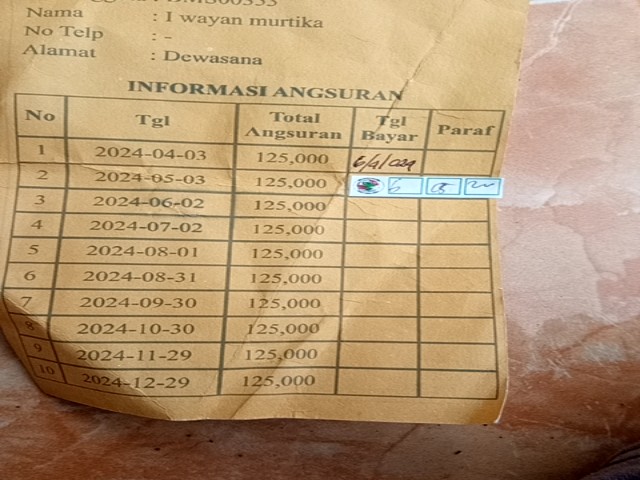 Nama : I wayan murtika
No Telp : -
Alamat : Dewasana
INFORMASI ANGSURAN
No Tgl Total Angsuran Tgl Bayar Paraf
1 2024-04-03 125,000 6/4/2024
2 2024-05-03 125,000 6 05
3 2024-06-02 125,000
4 2024-07-02 125,000
5 2024-08-01 125,000
6 2024-08-31 125,000
7 2024-09-30 125,000
8 2024-10-30 125,000
9 2024-11-29 125,000
10 2024-12-29 125,000